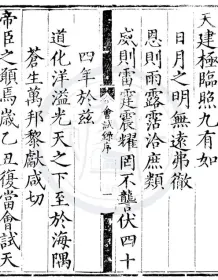 天建極臨照九有如
日月之明無遠弗徹
恩則雨露霑洽庶類
威則雷霆震耀罔不讋伏四十
四年於茲
道化洋溢光天之下至於海隅
蒼生萬邦黎獻咸切
帝臣之願焉歲乙丑復當會試天